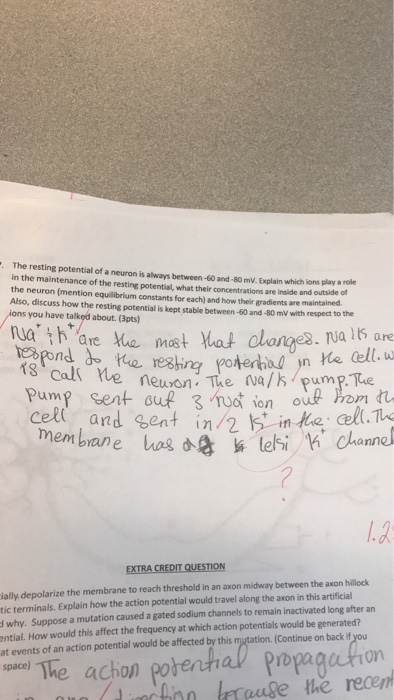 . The resting potential of a neuron is always between -60 and -80 mV. Explain which ions play a role
in the maintenance of the resting potential, what their concentrations are inside and outside of
the neuron (mention equilibrium constants for each) and how their gradients are maintained.
Also, discuss how the resting potential is kept stable between -60 and -80 mV with respect to the
ions you have talked about. (3pts)
Na⁺ ; K⁺ are the most that changes. Na K are
respond to the resting potential in the cell. w
is call the neuron. The Na/K pump. The
pump sent out 3 Na⁺ ion out from th
cell and sent in 2 K⁺ in the cell. The
membrane has K⁺ channel
?
1.2
EXTRA CREDIT QUESTION
ially depolarize the membrane to reach threshold in an axon midway between the axon hillock
tic terminals. Explain how the action potential would travel along the axon in this artificial
d why. Suppose a mutation caused a gated sodium channels to remain inactivated long after an
ential. How would this affect the frequency at which action potentials would be generated?
at events of an action potential would be affected by this mutation. (Continue on back if you
space) The action potential propagation
direction because the recent